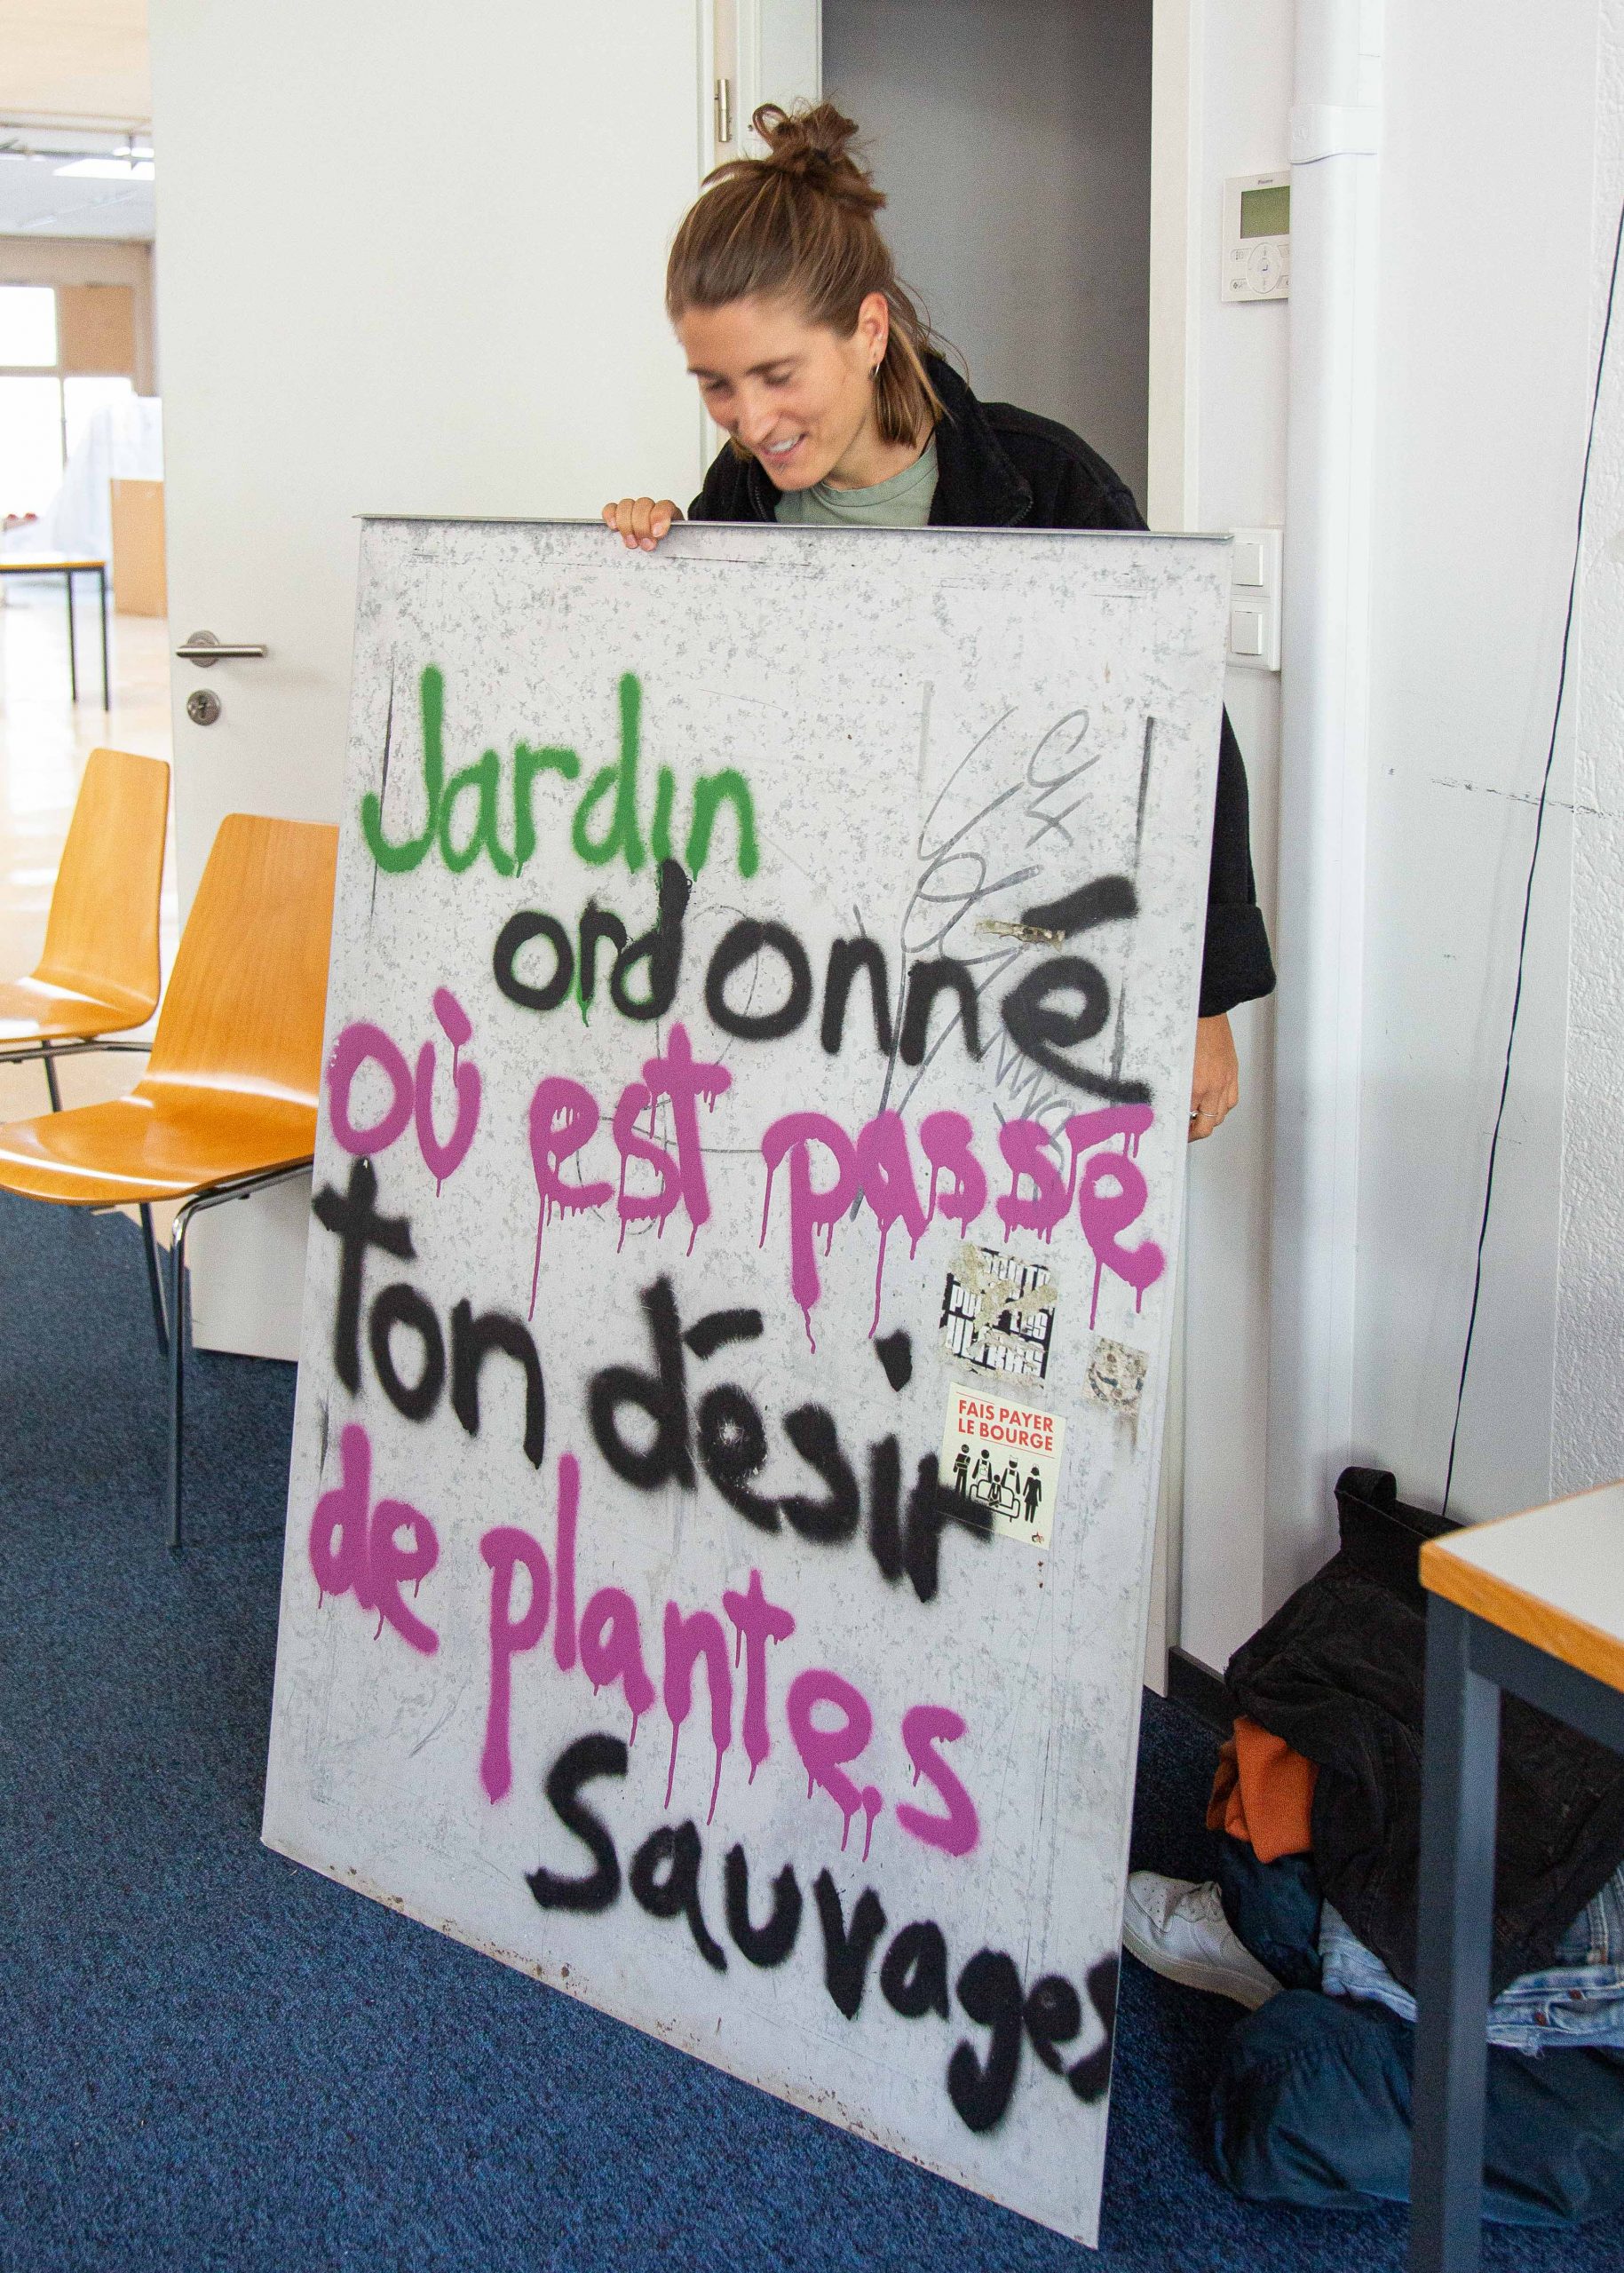 Jardin
ordonné
où est passé
ton désir
de plantes
Sauvages
LES
ULTRAS
FAIS PAYER
LE BOURGE